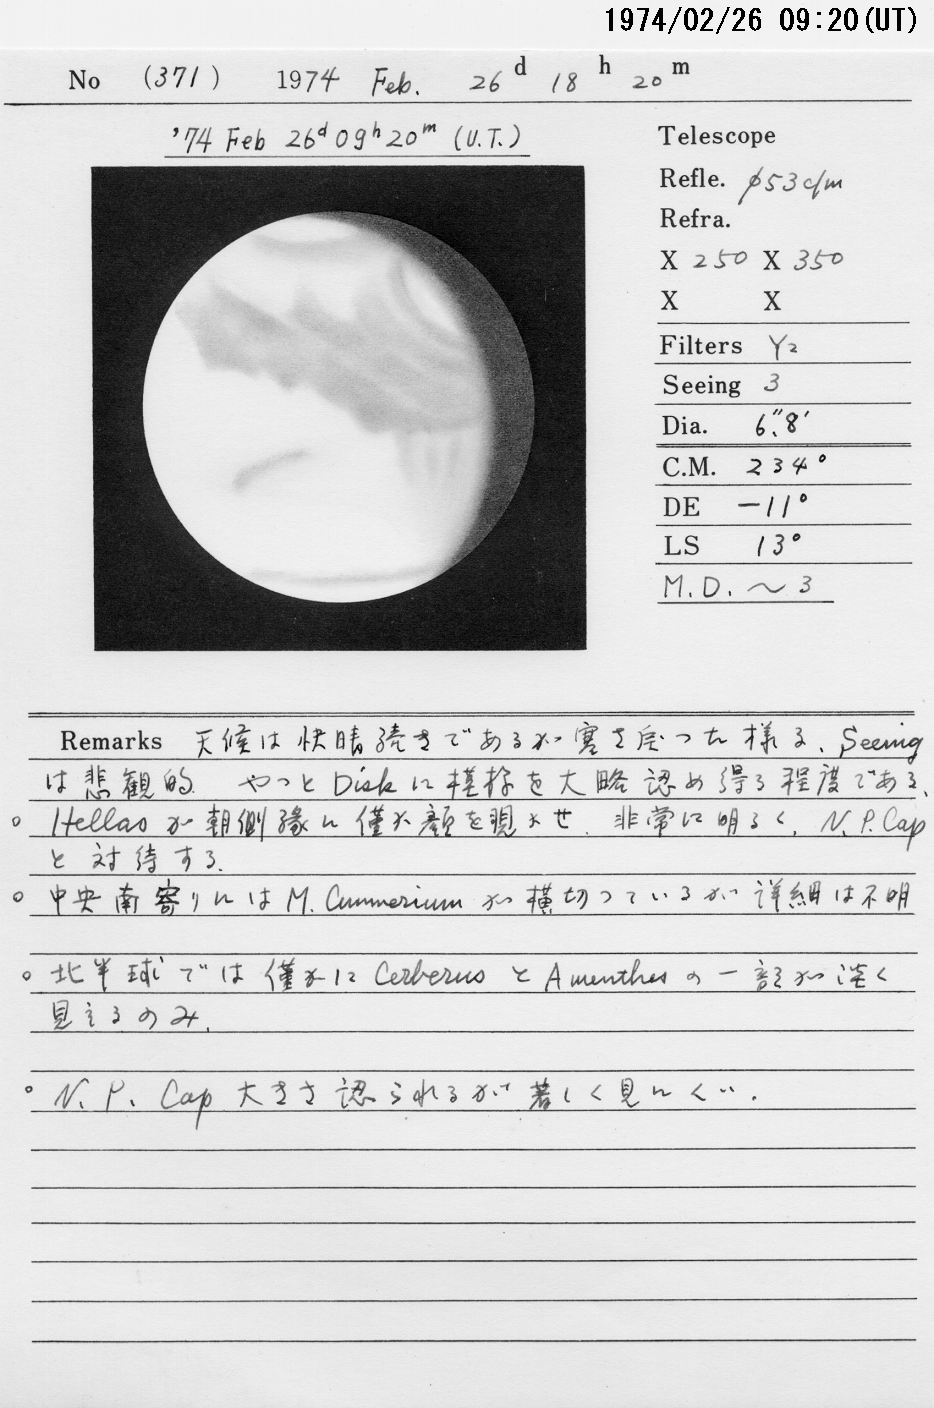 1974/02/26 09:20(UT)
No (371) 1974 Feb. 26 d 18 h 20 m
'74 Feb 26d 09h 20m (U.T.)
Telescope
Refle. φ53c/m
Refra.
X 250 X 350
X X
Filters Y2
Seeing 3
Dia. 6."8
C.M. 234°
DE -11°
LS 13°
M.D. ~ 3
Remarks 天候は快晴続きであるが寒さ戻った様る、Seeing
は悲観的 やっとDiskに模様を大略認め得る程度である、
○ Hellasが朝側縁に僅か顔を現わせ、非常に明るく、N.P.Cap
と対待する.
○ 中央南寄りにはM.Cimmeriumが横切っているが詳細は不明
○ 北半球では僅かにCerberusとAmenthesの一部が淡く
見えるのみ.
○ N.P. Cap 大きさ認られるが著しく見にくい.